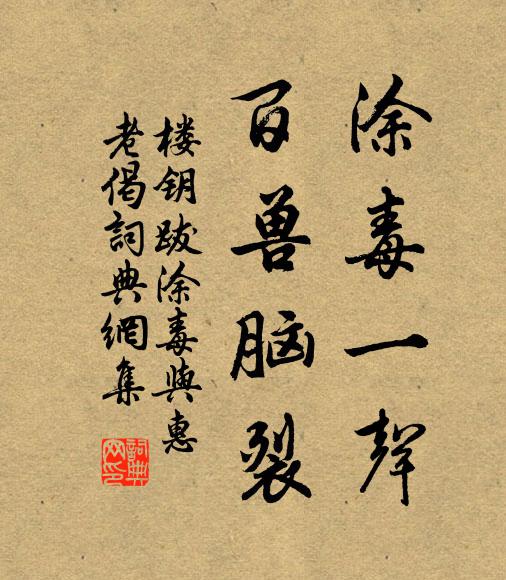 涂毒一声
百兽脑裂
楼钥跋涂毒与惠
老偈词典网集
词典网印